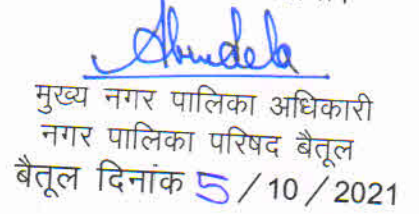 मुख्य नगर पालिका अधिकारी
नगर पालिका परिषद बैतूल
बैतूल दिनांक 5 / 10 / 2021